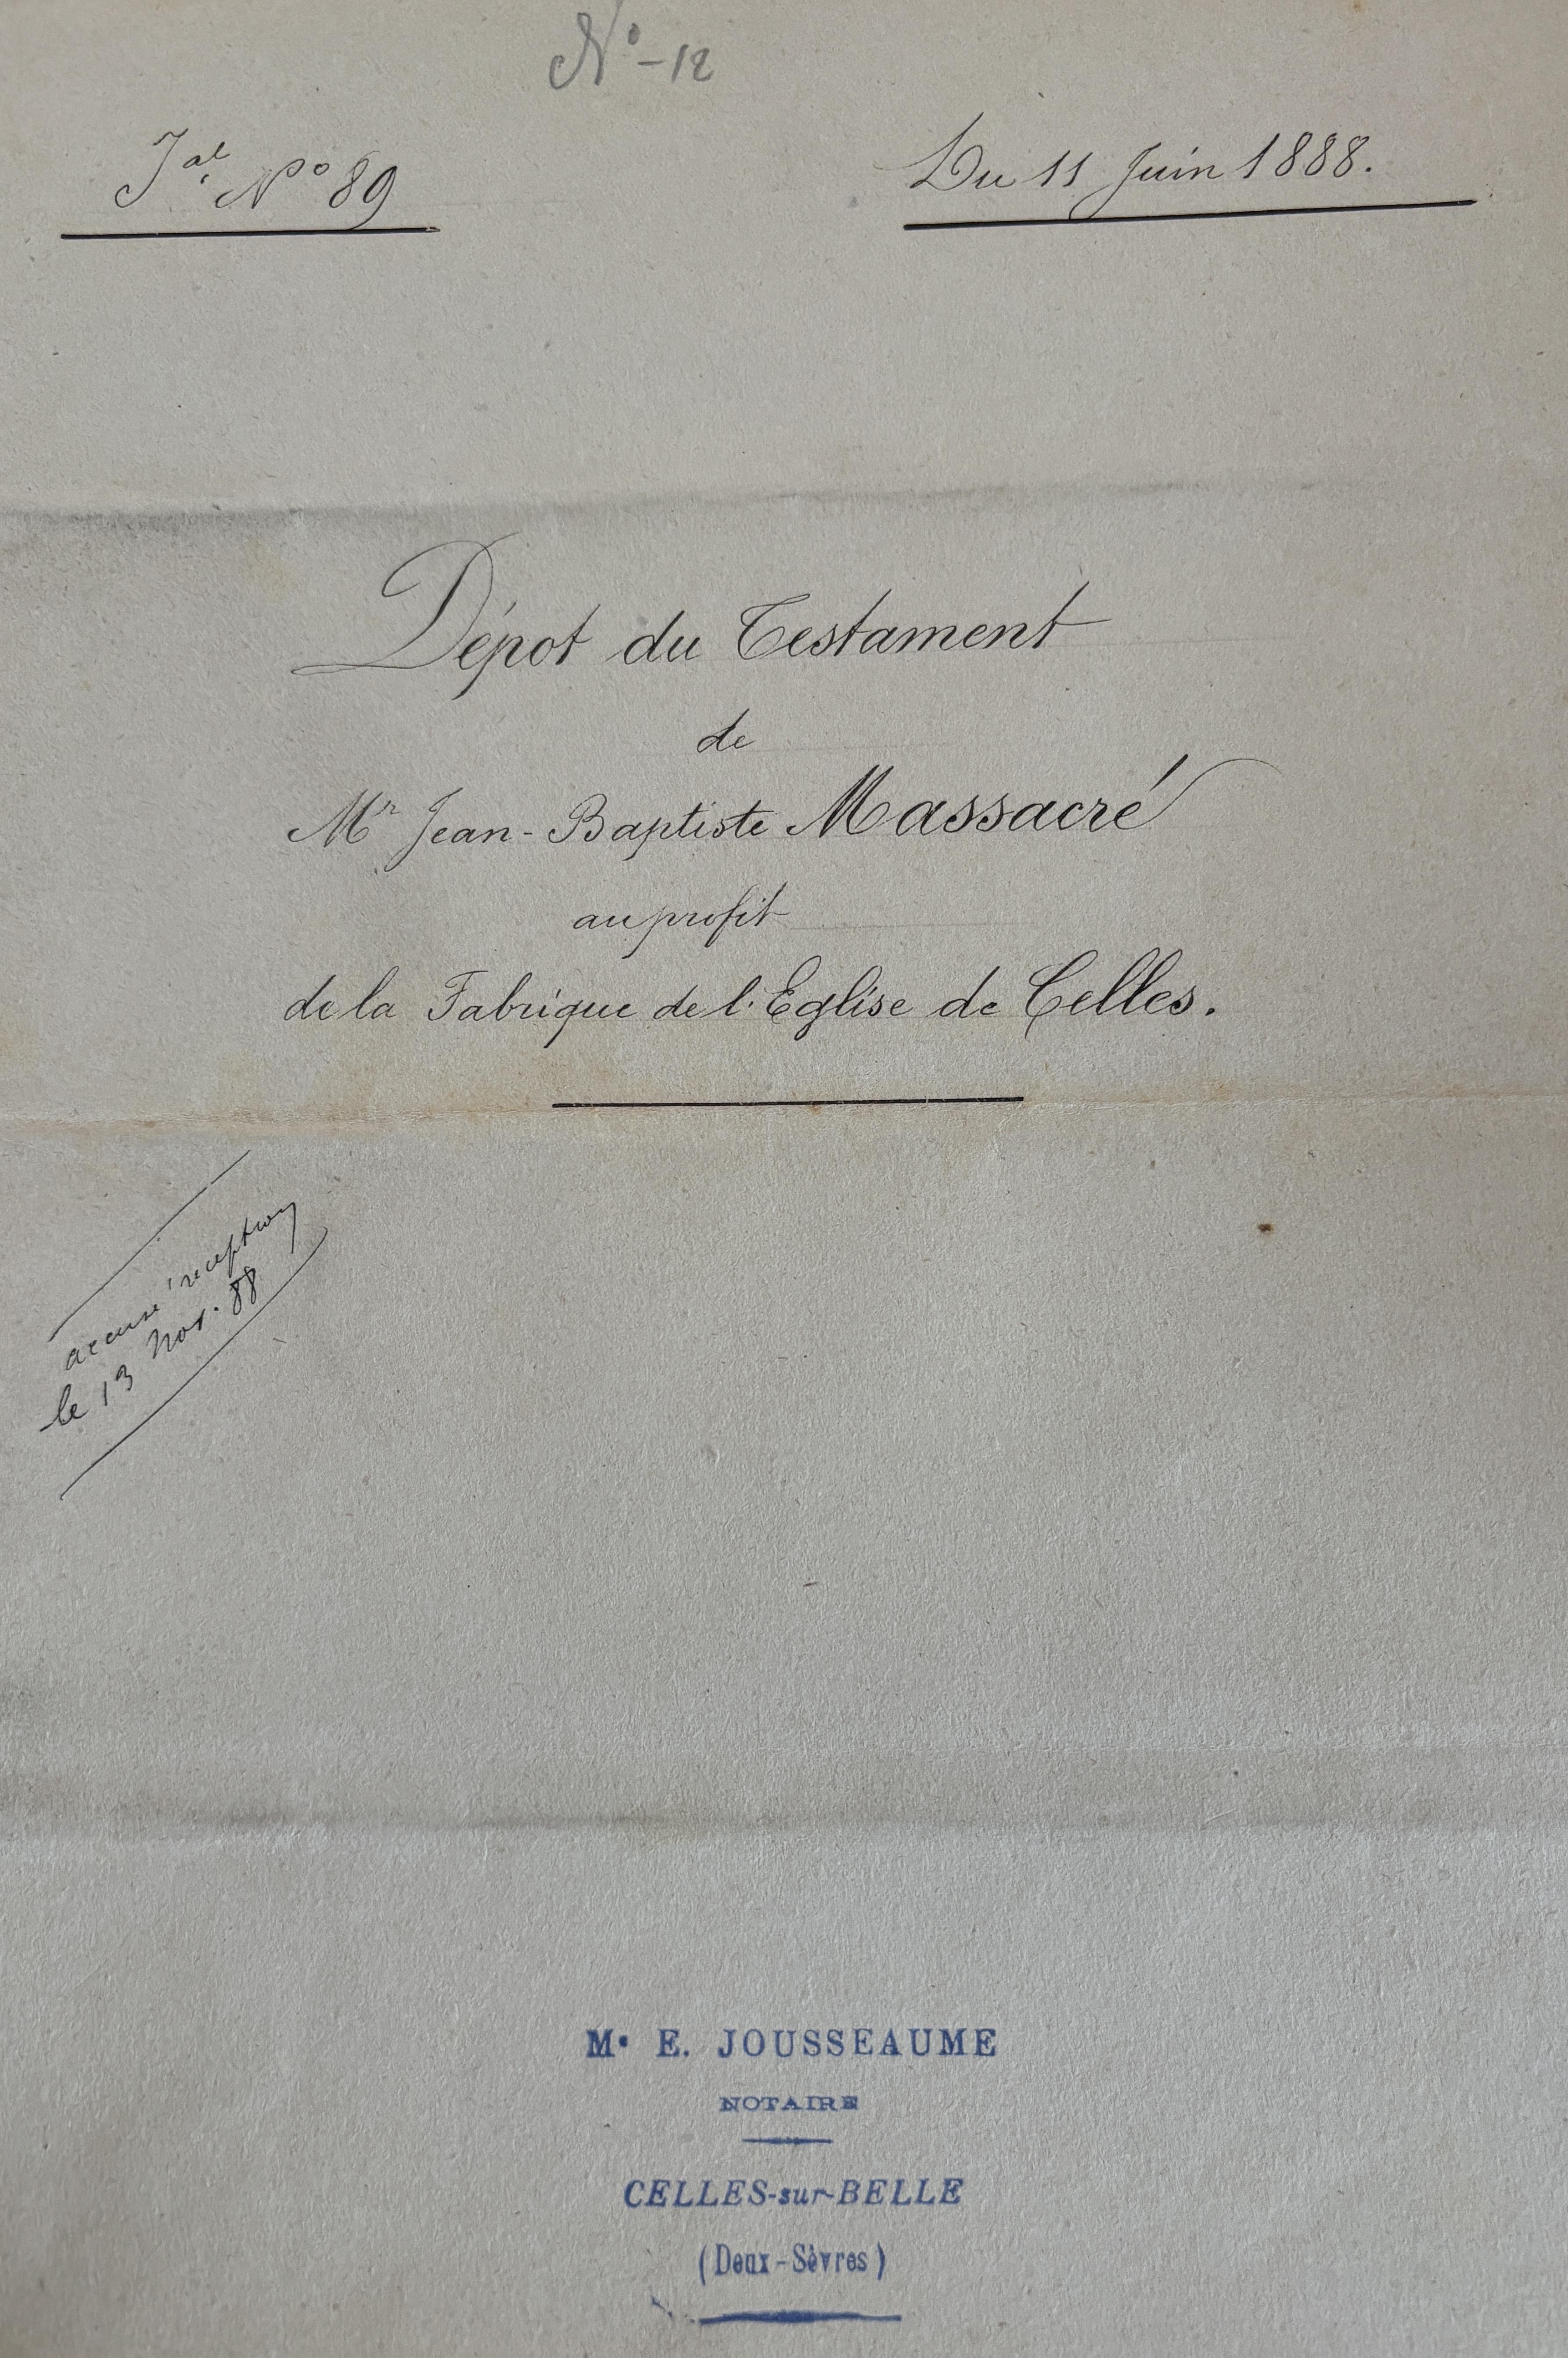 N° - 12
Jal. N° 89
Du 11 Juin 1888.
Dépot du Testament
de
Mr Jean-Baptiste Massacré
au profit
de la Fabrique de l'Eglise de Celles.
accusé réception
le 13 Nov. 88
Me E. JOUSSEAUME
NOTAIRE
CELLES-sur-BELLE
(Deux-Sèvres)